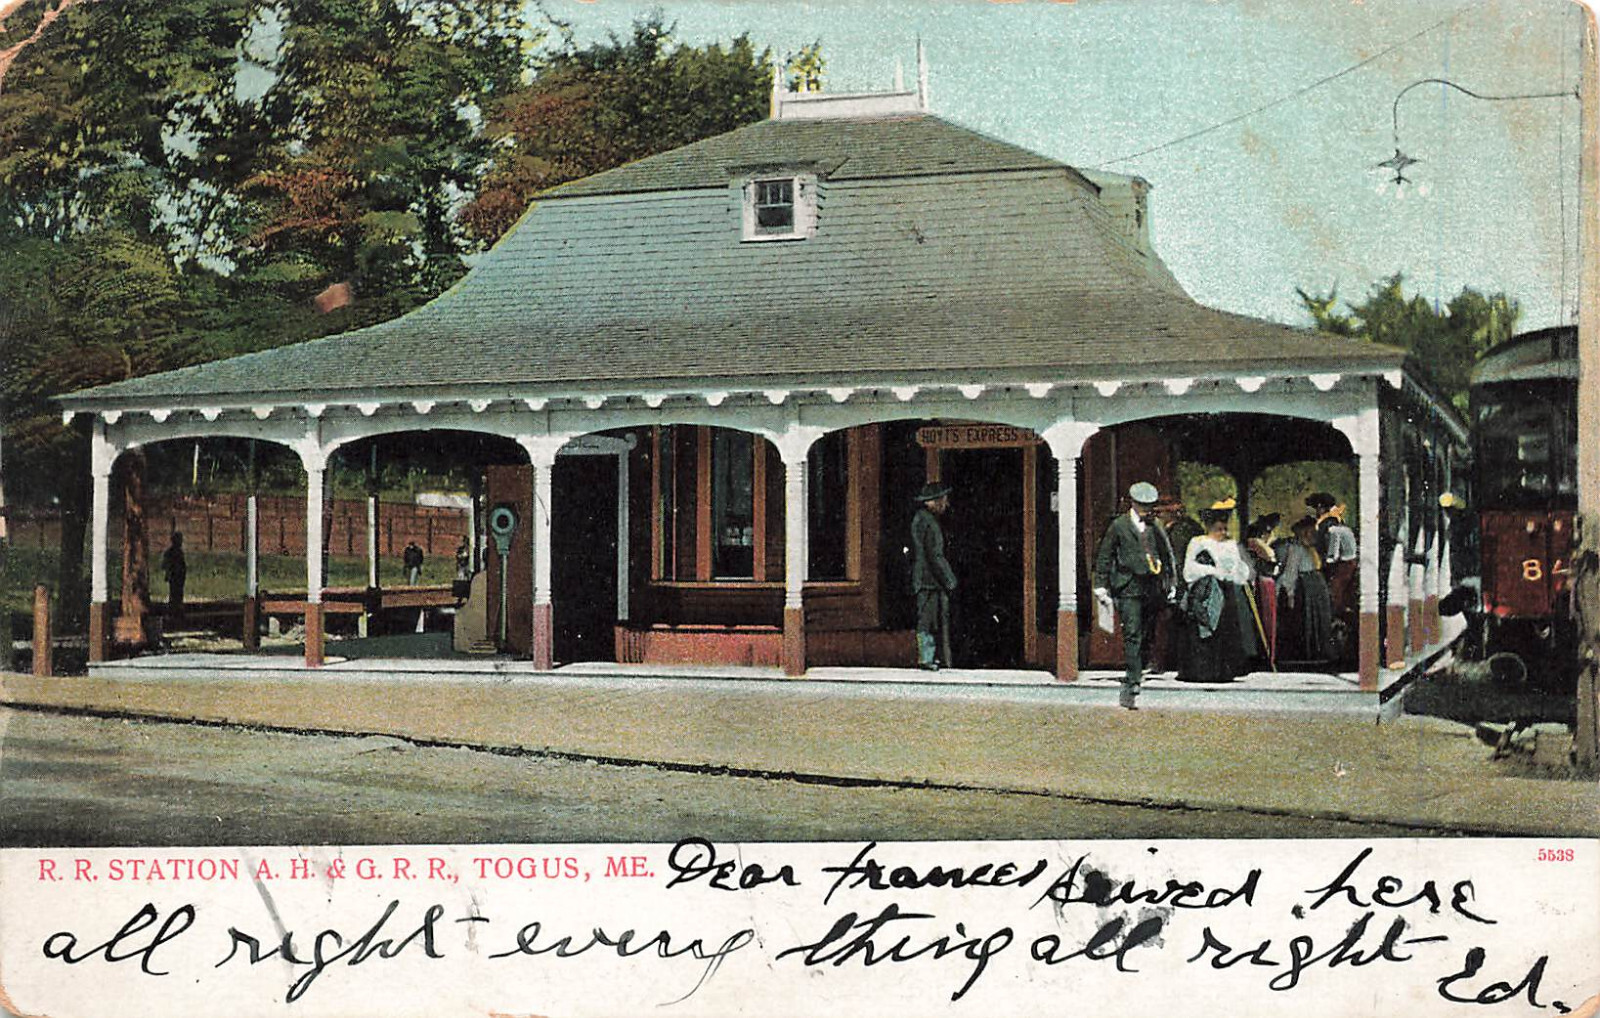 HOYT'S EXPRESS
8
R. R. STATION A. H. & G. R. R., TOGUS, ME. Dear Frances arived here
5538
all right every thing all right
Ed.